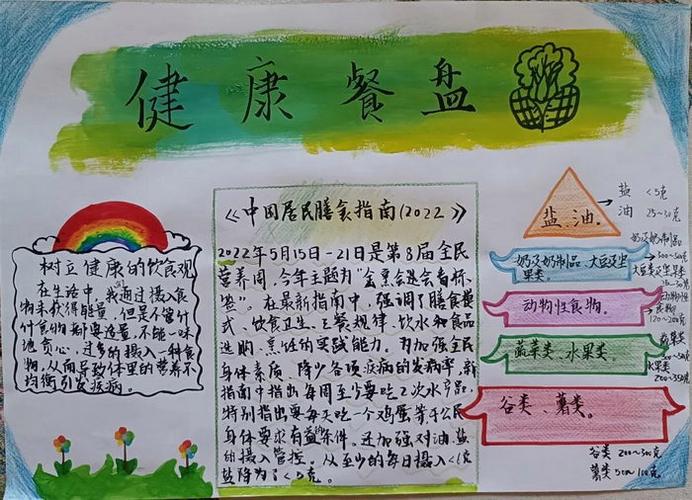 健康餐盘
树立健康的饮食观
在生活中,我通过摄入食
物来获得能量,但是不管什
什食物都要适量,不能一味
地贪心,过多的摄入一种食
物,从而导致体里的营养不
均衡引发疾病。
《中国居民膳食指南(2022)》
2022年5月15日-21日是第8届全民
营养周,今年主题为"会烹会选会看标
签"。在最新指南中,强调了膳食模
式、饮食卫生、三餐规律、饮水和食品
选购、烹饪的实践能力。为加强全民
身体素质、降少各项疾病的发病率,新
指南中指出每周至少要吃2次水产品,
特别指出要每天吃一个鸡蛋等,于公民
身体要求有益条件。还加强对油、盐
的摄入管控,从至少的每日摄入<6克
盐降为了<5克。
盐、油。
盐 <5克
油 25~30克
奶及奶制品、大豆及坚
果类。
奶及奶制品
300~500克
大豆及坚果类
25~35克
动物性食物。
动物性
食物
120~200克
蔬菜类、水果类。
蔬菜类
水果类
200~350克
谷类、薯类。
谷类 200~300克
薯类 50~100克